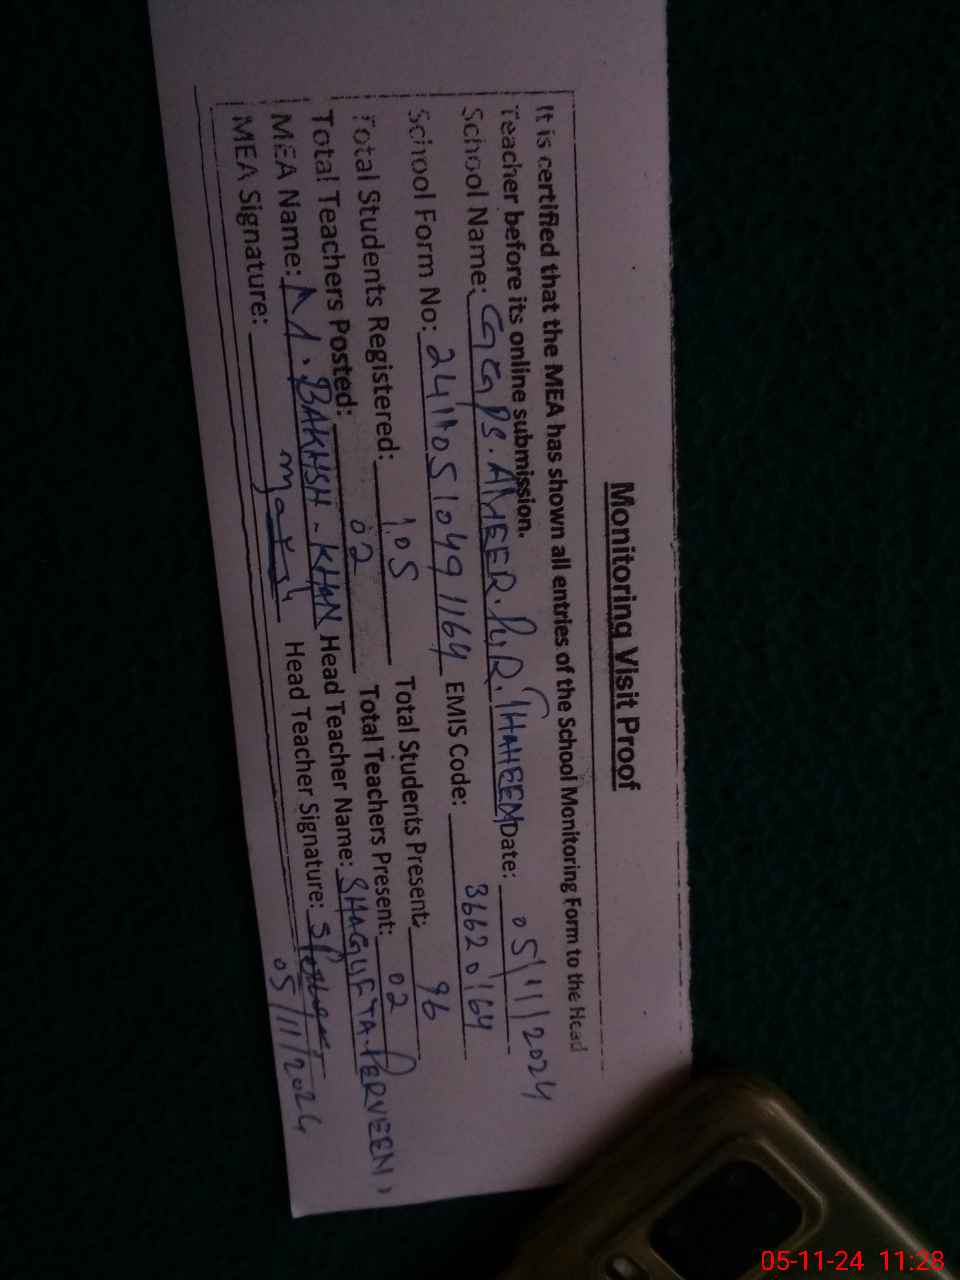 Monitoring Visit Proof
It is certified that the MEA has shown all entries of the School Monitoring Form to the Head
Teacher before its online submission.
School Name: GGPS. AMEER. PUR. Date: 05/11/2024
School Form No: EMIS Code: 36620164
Total Students Registered: 105 Total Students Present: 96
Total Teachers Posted: 02 Total Teachers Present: 02
MEA Name: M. BAKHSH - KHAN Head Teacher Name: SHAGUFTA. PERVEEN
MEA Signature: Head Teacher Signature:
05/11/2024
05-11-24 11:28